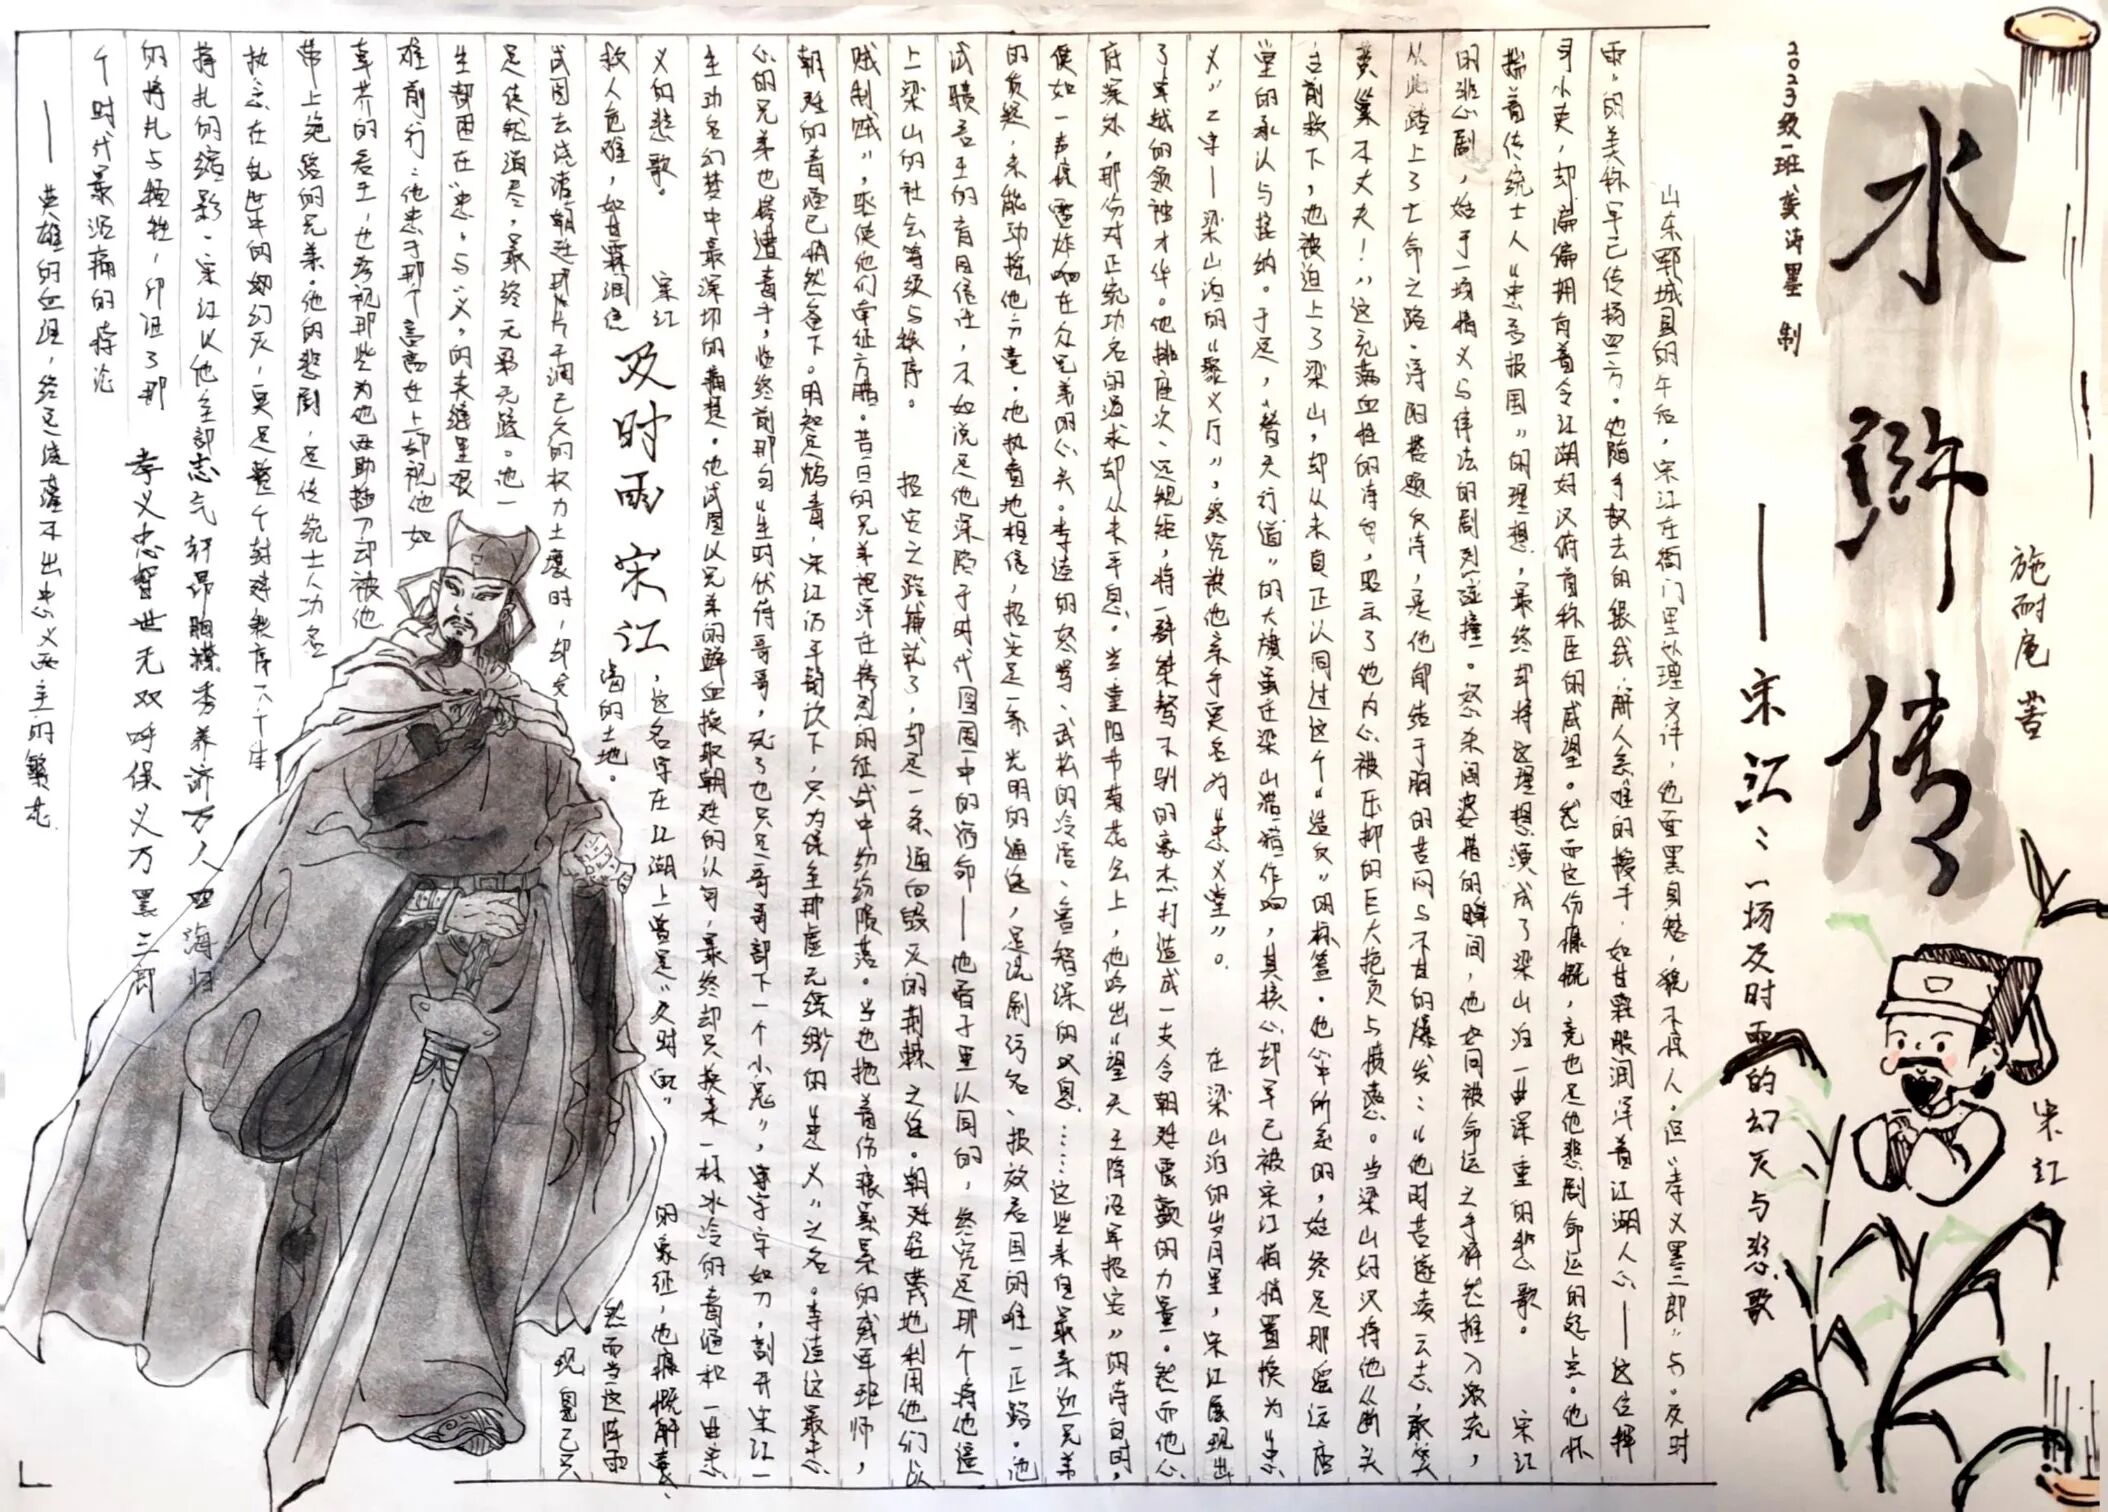 水浒传
施耐庵 著
——宋江:一场及时雨的幻灭与悲歌
2023级一班 龚诗墨 制
宋江
山东郓城县的午后,宋江在衙门里处理文详,他面黑身矮,貌不惊人,但"孝义黑三郎"与"及时
雨"的美称早已传扬四方。他随手散去的银钱,解人急难的援手,如甘霖般润泽着江湖人心——这位押
司小吏,却偏偏拥有着令江湖好汉俯首称臣的威望。然而这份慷慨,竟也是他悲剧命运的起点。他怀
揣着传统士人"忠君报国"的理想,最终却将这理想演成了梁山泊一曲深重的悲歌。 宋江
的悲剧,始于一场情义与律法的剧烈碰撞。怒杀阎婆惜的瞬间,他如同被命运之手猝然推入激流,
从此踏上了亡命之路。浔阳楼题反诗,是他郁结于胸的苦闷与不甘的爆发:"他时若遂凌云志,敢笑
黄巢不丈夫!"这充满血性的诗句,昭示了他内心被压抑的巨大抱负与愤懑。当梁山好汉将他从断头
台前救下,他被迫上了梁山,却从未真正认同过这个"造反"的标签。他毕所求的,始终是那遥远庙
堂的承认与接纳。于是,"替天行道"的大旗虽在梁山猎猎作响,其核心却早已被宋江悄悄置换为"忠
义"二字——梁山泊的"聚义厅",终究被他亲手更名为"忠义堂"。 在梁山泊的岁月里,宋江展现出
了卓越的领袖才华。他排座次、定规矩,将一群桀骜不驯的豪杰打造成一支令朝廷震颤的力量。然而他心
底深处,那份对正统功名的渴求却从未平息。当重阳节菊花会上,他吟出"望天王降诏早招安"的诗句时,
便如一声惊雷炸响在众兄弟的心头。李逵的怒骂、武松的冷语、鲁智深的叹息……这些来自最亲近兄弟
的质疑,未能动摇他分毫。他执着地相信,招安是一条光明的通途,是洗刷污名、报效君国的唯一正路。他
君王的盲目信任,不如说是他深陷于时代囹圄中的宿命——他骨子里认同的,终究是那个将他逼
上梁山的社会等级与秩序。 招安之路铺就了,却是一条通向毁灭的荆棘之途。朝廷轻蔑地利用他们"以
贼制贼",驱使他们南征方腊。昔日的兄弟袍泽在惨烈的征战中纷纷陨落。当他拖着伤痕累累的残军班师,
朝廷的毒酒已悄然备下。明知是鸩毒,宋江仍平静饮下,只为保全那虚无缥缈的"忠义"之名。李逵这最忠
心的兄弟也惨遭毒手,临终前那句"生时伏侍哥哥,死了也只是哥哥部下一个小鬼",字字如刀,剖开宋江一
生功名幻梦中最深切的痛楚。他试图以兄弟的鲜血换取朝廷的认可,最终却只换来一杯冰冷的毒酒和一曲忠
义的悲歌。 宋江,这名字在江湖上曾是"及时雨"的象征,他慷慨解囊、
救人危难,如甘霖润泽渴的土地。 然而当这阵雨
及时雨 宋江
试图去浇灌朝廷那片干涸已久的权力土壤时,却发现自己只
是使甘霖消尽,最终无影无踪。他一
生都困在"忠"与"义"的夹缝里艰
难前行:他忠于那个高高在上却视他如
草芥的君王,也珍视那些为他两肋插刀却被他
带上绝路的兄弟。他的悲剧,是传统士人功名
执念在乱世中的幻灭,更是整个封建秩序下个体
挣扎的缩影。宋江以他全部
的挣扎与牺牲,印证了那
个时代最沉痛的悖论
——英雄的血泪,终是浇灌不出忠义两全的繁花。
志气轩昂胸襟秀 养济万人四海归
孝义忠督世无双 呼保义万黑三郎